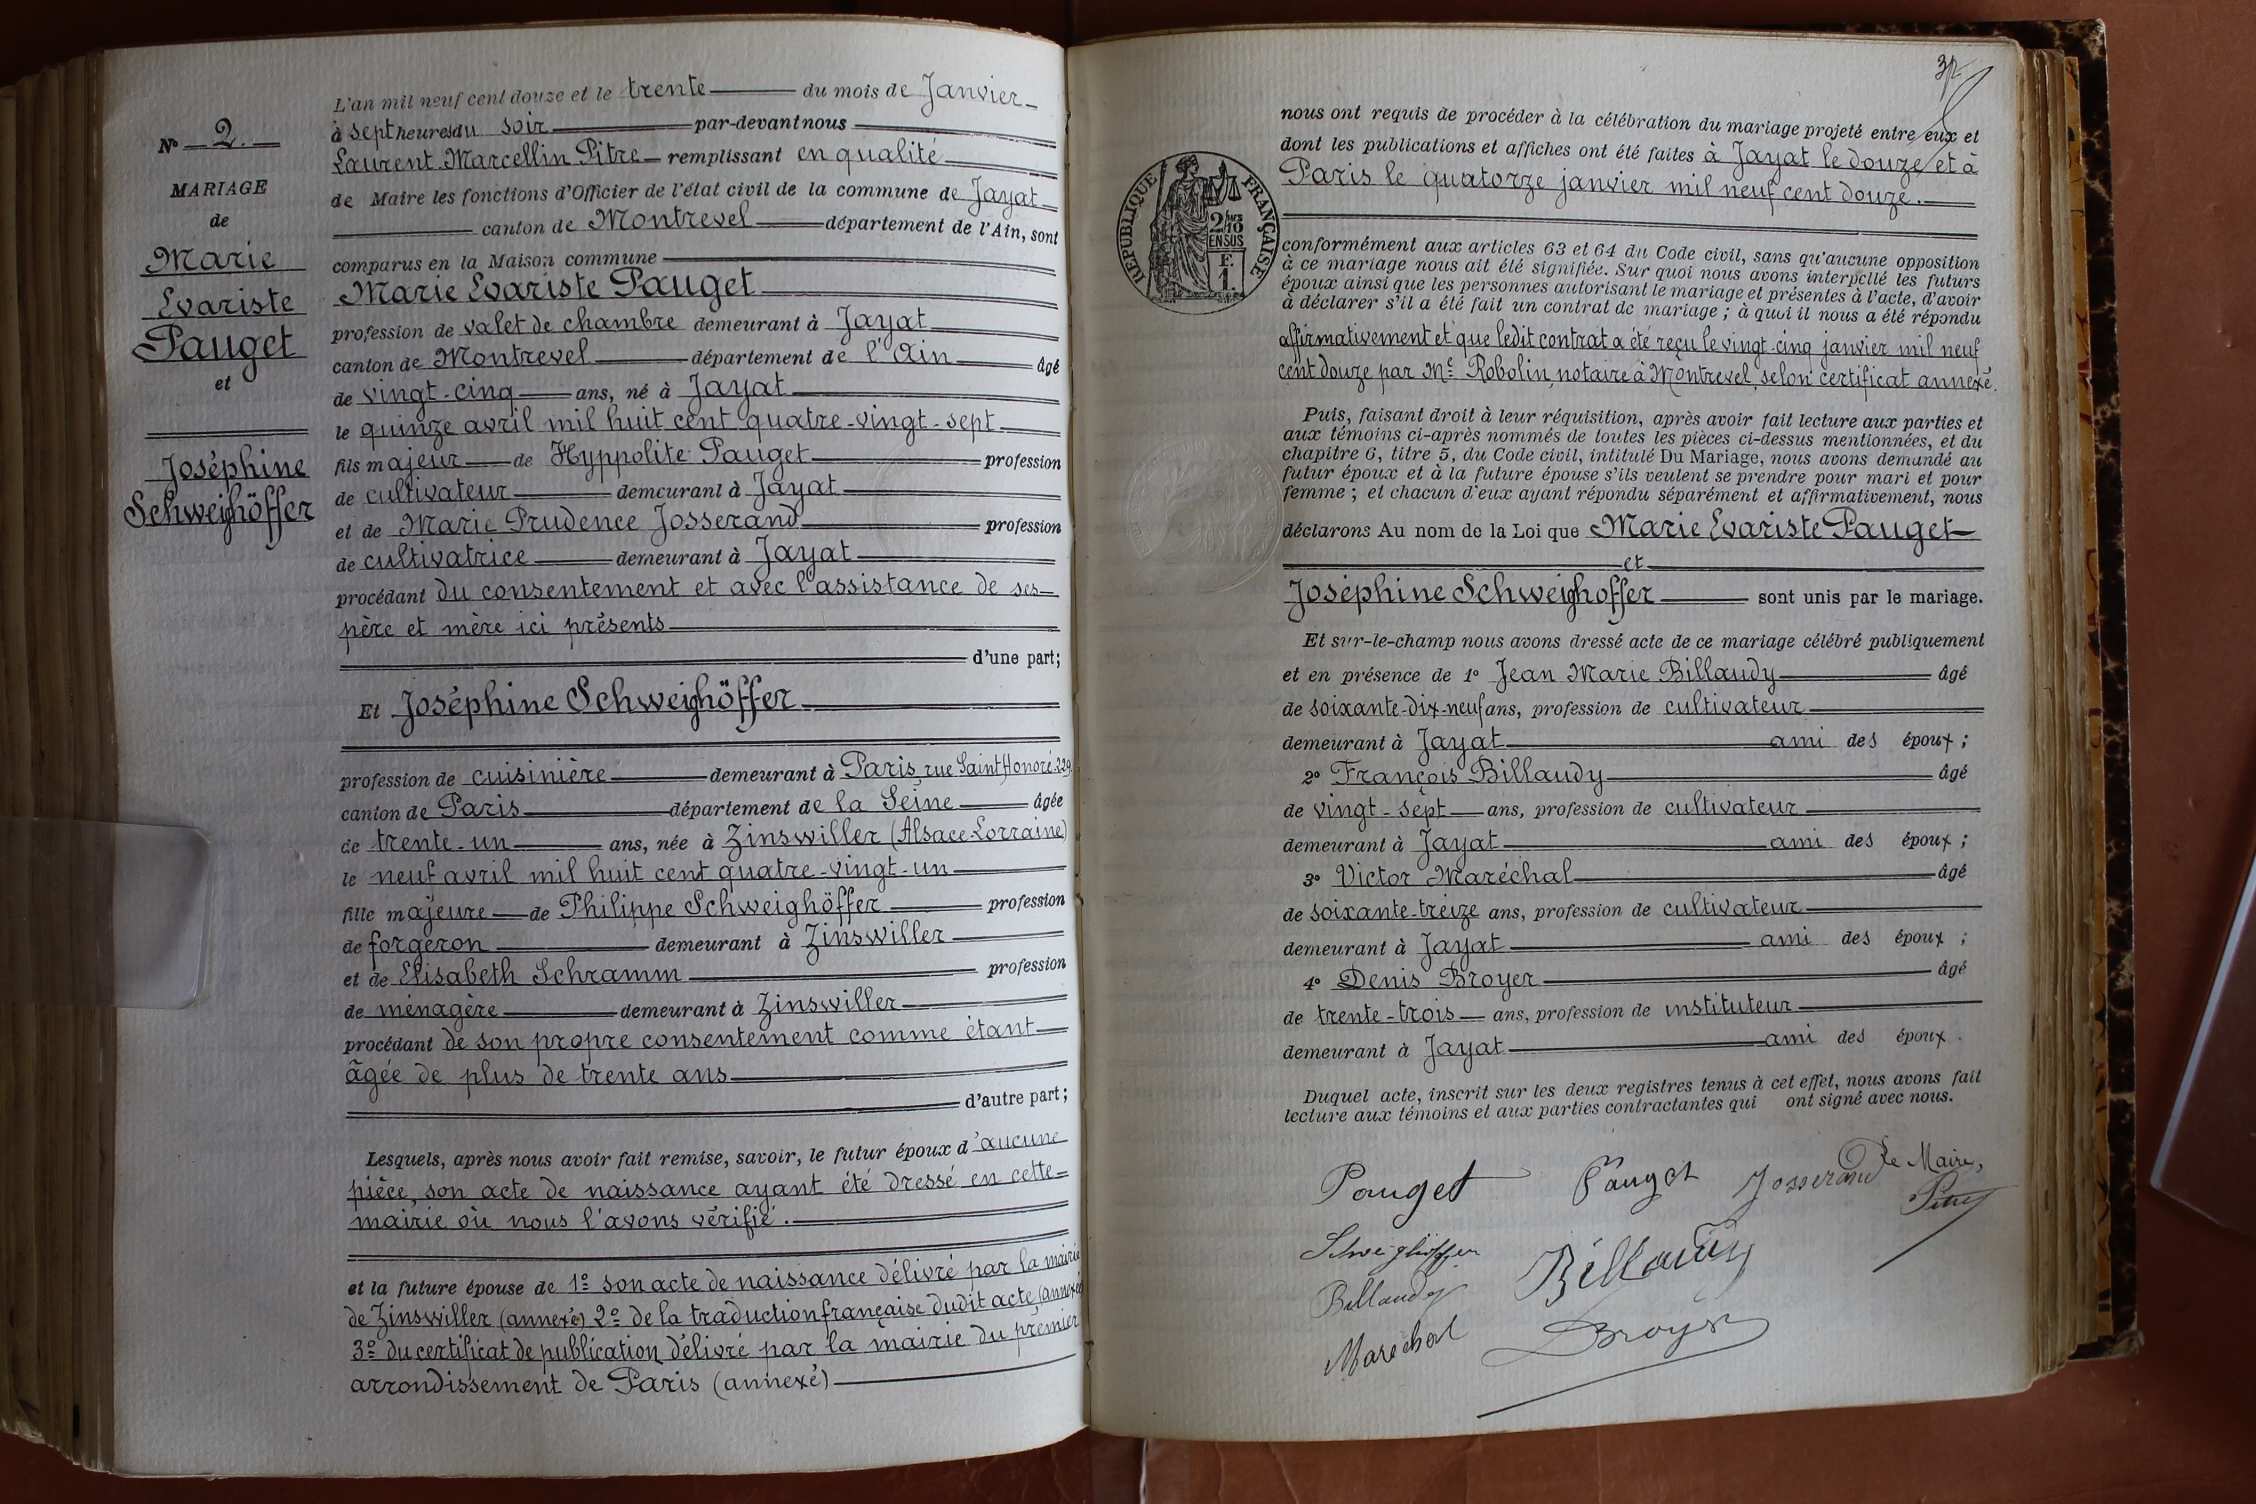 L'an mil neuf cent douze et le trente du mois de Janvier
à sept heures du soir par-devant nous
Laurent Marcellin Pitre remplissant en qualité
de Maire les fonctions d'Officier de l'état civil de la commune de Jayat
canton de Montrevel département de l'Ain, sont
comparus en la Maison commune
Marie Evariste Pauget
profession de valet de chambre demeurant à Jayat
canton de Montrevel département de l'Ain âgé
de vingt-cinq ans, né à Jayat
le quinze avril mil huit cent quatre-vingt-sept
fils majeur de Hyppolite Pauget profession
de cultivateur demeurant à Jayat
et de Marie Prudence Josserand profession
de cultivatrice demeurant à Jayat
procédant du consentement et avec l'assistance de ses
père et mère ici présents
d'une part;
Et Joséphine Schweighöffer
profession de cuisinière demeurant à Paris, rue Saint Honoré 229
canton de Paris département de la Seine âgée
de trente-un ans, née à Zinswiller (Alsace-Lorraine)
le neuf avril mil huit cent quatre-vingt-un
fille majeure de Philippe Schweighöffer profession
de forgeron demeurant à Zinswiller
et de Elisabeth Schramm profession
de ménagère demeurant à Zinswiller
procédant de son propre consentement comme étant
âgée de plus de trente ans
d'autre part;
Lesquels, après nous avoir fait remise, savoir, le futur époux d'aucune
pièce, son acte de naissance ayant été dressé en cette
mairie où nous l'avons vérifié.
et la future épouse de 1º son acte de naissance délivré par la mairie
de Zinswiller (annexé) 2º de la traduction française dudit acte (annexée)
3º du certificat de publication délivré par la mairie du premier
arrondissement de Paris (annexé)
Nº 2.
MARIAGE
de
Marie
Evariste
Pauget
et
Joséphine
Schweighöffer
nous ont requis de procéder à la célébration du mariage projeté entre eux et
dont les publications et affiches ont été faites à Jayat le douze et à
Paris le quatorze janvier mil neuf cent douze.
RÉPUBLIQUE FRANÇAISE
2/10
EN SUS
F.
1.
conformément aux articles 63 et 64 du Code civil, sans qu'aucune opposition
à ce mariage nous ait été signifiée. Sur quoi nous avons interpellé les futurs
époux ainsi que les personnes autorisant le mariage et présentes à l'acte, d'avoir
à déclarer s'il a été fait un contrat de mariage ; à quoi il nous a été répondu
affirmativement et que ledit contrat a été reçu le vingt-cinq janvier mil neuf
cent douze par Me Robolin, notaire à Montrevel, selon certificat annexé.
Puis, faisant droit à leur réquisition, après avoir fait lecture aux parties et
aux témoins ci-après nommés de toutes les pièces ci-dessus mentionnées, et du
chapitre 6, titre 5, du Code civil, intitulé Du Mariage, nous avons demandé au
futur époux et à la future épouse s'ils veulent se prendre pour mari et pour
femme ; et chacun d'eux ayant répondu séparément et affirmativement, nous
déclarons Au nom de la Loi que Marie Evariste Pauget
et
Joséphine Schweighoffer sont unis par le mariage.
Et sur-le-champ nous avons dressé acte de ce mariage célébré publiquement
et en présence de 1º Jean Marie Billaudy âgé
de soixante-dix-neuf ans, profession de cultivateur
demeurant à Jayat ami des époux ;
2º François Billaudy âgé
de vingt-sept ans, profession de cultivateur
demeurant à Jayat ami des époux ;
3º Victor Maréchal âgé
de soixante-treize ans, profession de cultivateur
demeurant à Jayat ami des époux ;
4º Denis Broyer âgé
de trente-trois ans, profession de instituteur
demeurant à Jayat ami des époux.
Duquel acte, inscrit sur les deux registres tenus à cet effet, nous avons fait
lecture aux témoins et aux parties contractantes qui ont signé avec nous.
Le Maire,
Pauget Pauget Josserand Pitre
Schweighöffer
Billaudy Billaudy
Maréchal Broyer